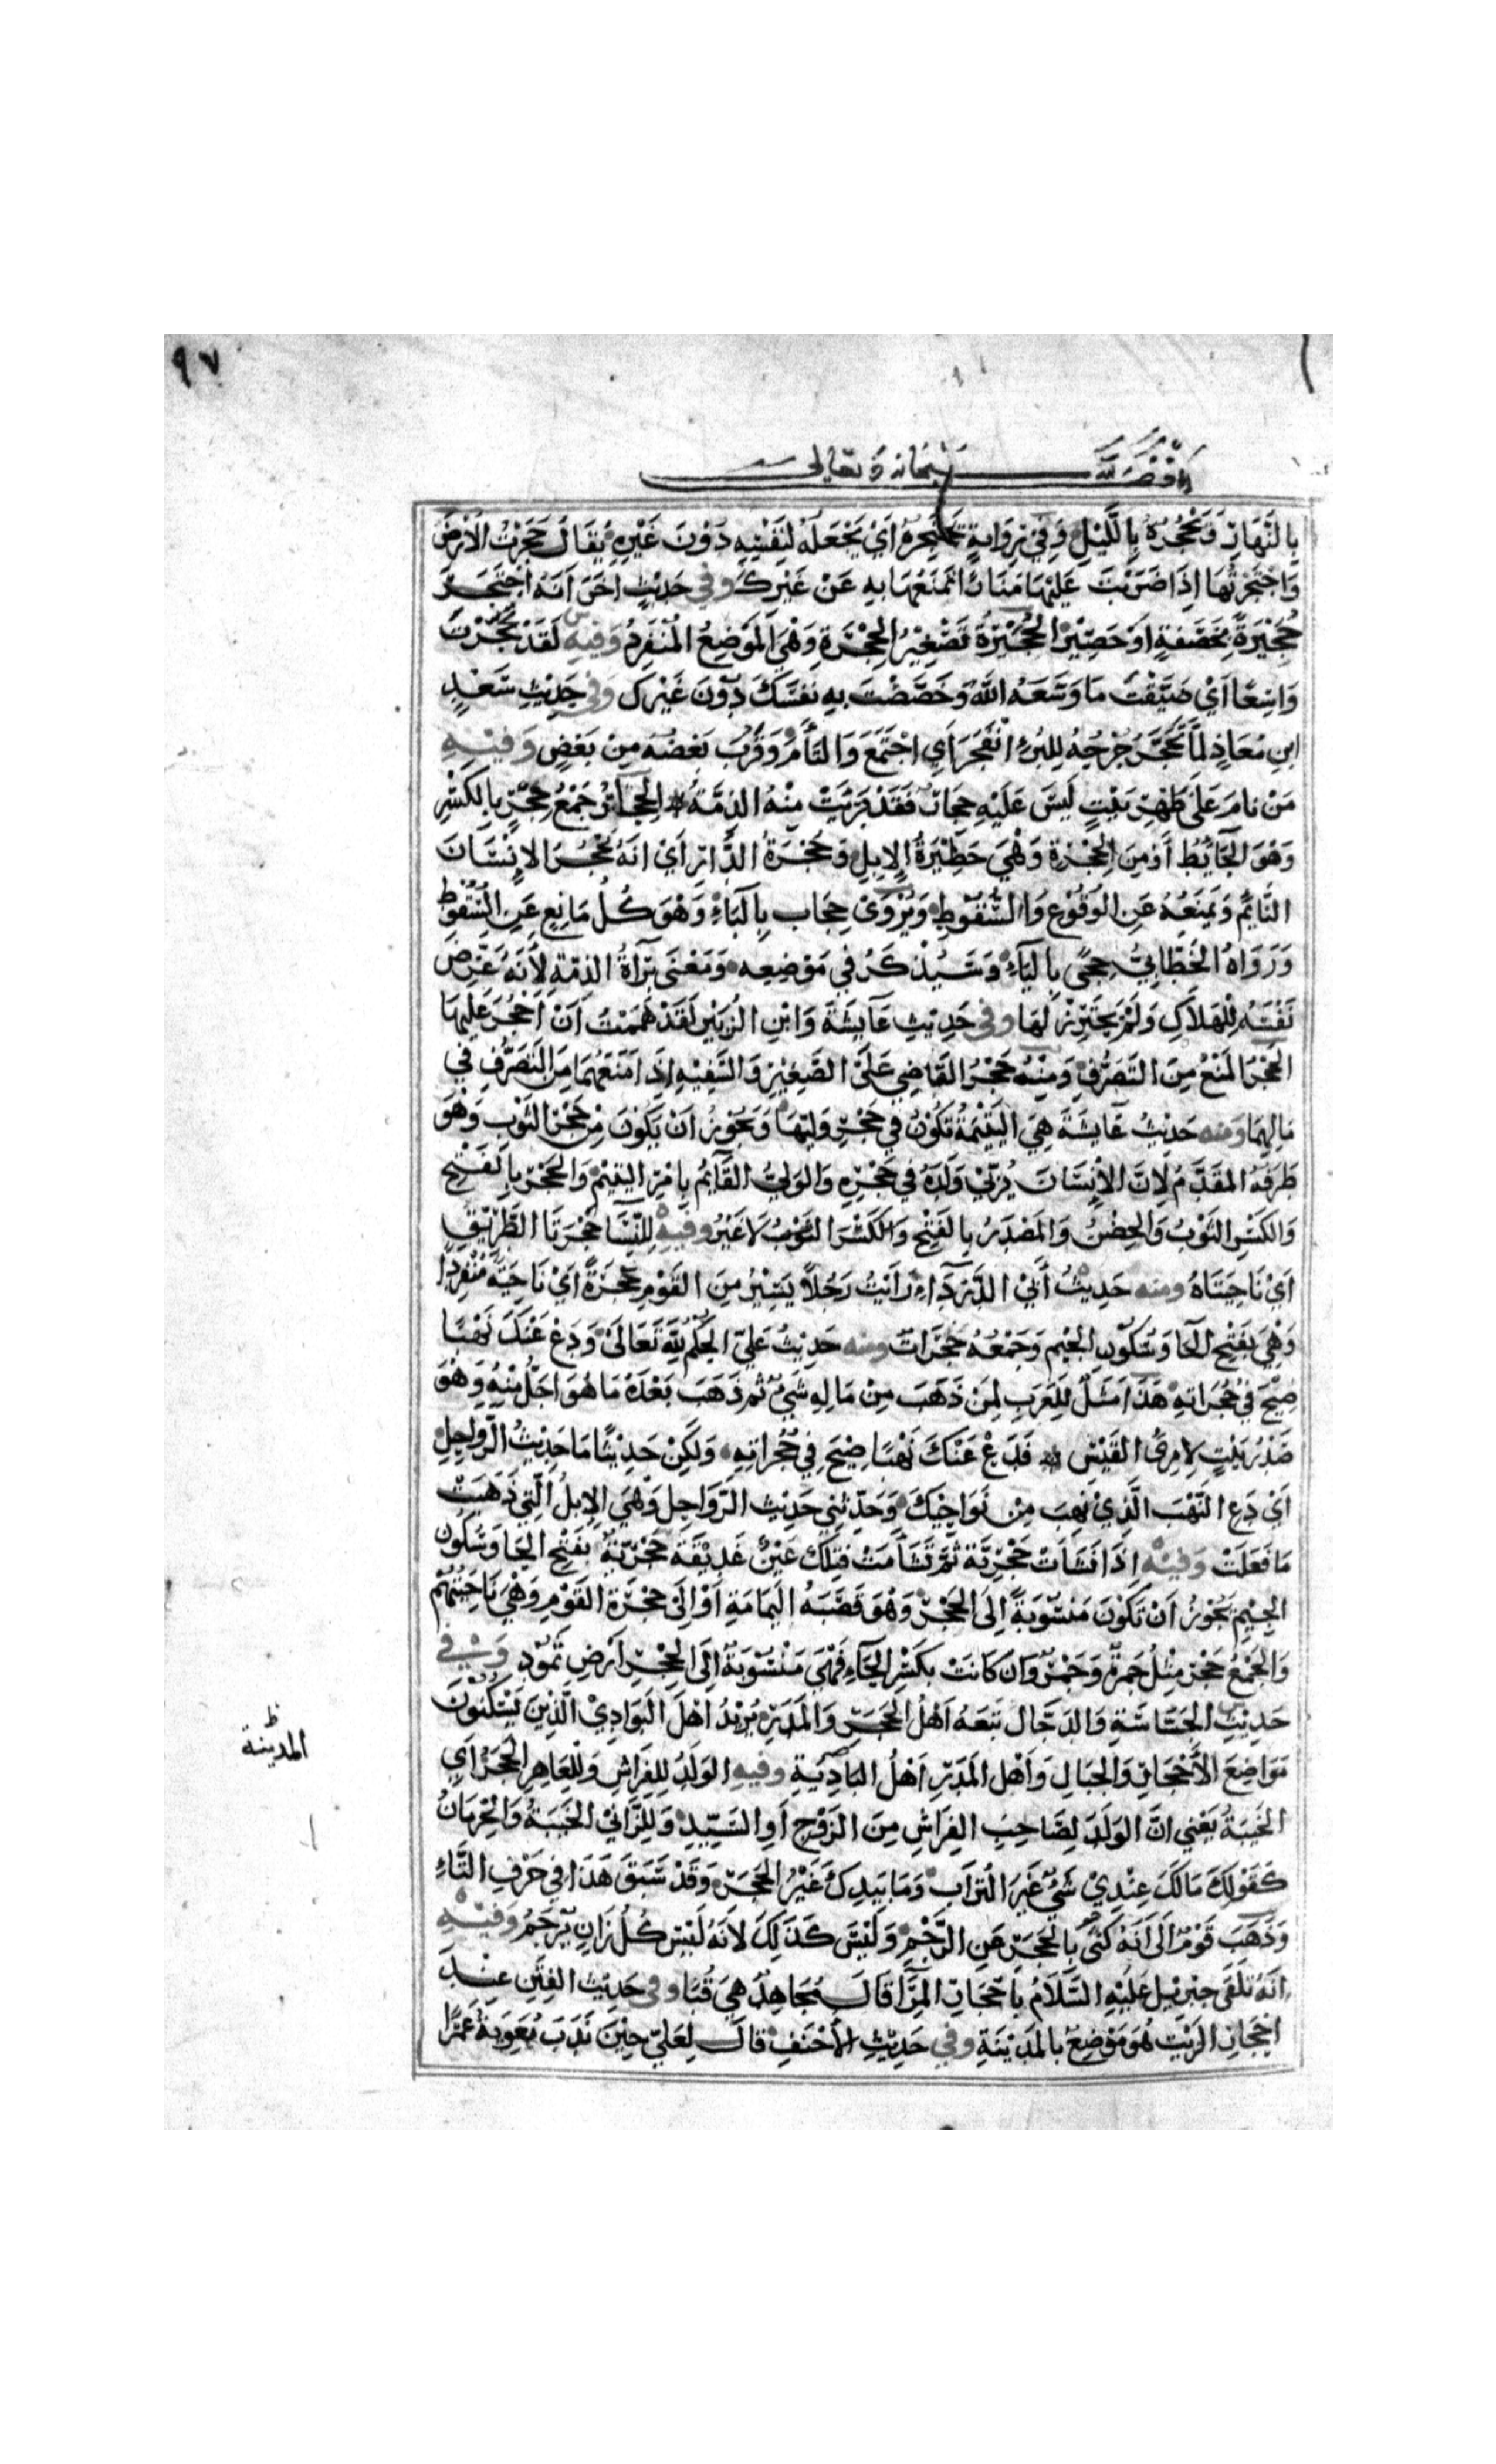 ٩٧
وقف لله سبحانه وتعالى
بِالنَّهَارِ وَيَحْجُرُهُ بِاللَّيْلِ وَفِي رِوَايَةٍ يَحْتَجِرُهُ أَيْ يَجْعَلُهُ لِنَفْسِهِ دُوْنَ غَيْرِهِ يُقَالُ حَجَرْتُ الْأَرْضَ
وَاحْتَجَرْتُهَا إِذَا ضَرَبْتَ عَلَيْهَا مَنَارًا تَمْنَعُهَا بِهِ عَنْ غَيْرِكَ وفي حَدِيْثٍ اخَرَ أَنَّهُ احْتَجَرَ
حُجَيْرَةً بِخَصَفَةٍ اَوْ حَصِيْرٍ الْحُجَيْرَةُ تَصْغِيْرُ الحُجْرَةِ وَهْيَ الْمَوْضِعُ الْمُنْفَرِدُ وَفِيْهِ لَقَدْ تَحَجَّرْتَ
وَاسِعًا اَيْ ضَيَّقْتَ مَا وَسَّعَهُ اللّٰهُ وَخَصَّصْتَ بِهِ نَفْسَكَ دُوْنَ غَيْرِكَ وَفي حَدِيْثِ سَعْدِ
ابْنِ مُعَاذٍ لَمَّا تَحَجَّرَ جُرْحُهُ لِلْبُرْءِ انْفَجَرَ اَيِ اجْتَمَعَ وَالْتَأَمَ وَقَرُبَ بَعْضُهُ مِنْ بَعْضٍ وَفِيْهِ
مَنْ نَامَ عَلَى ظَهْرِ بَيْتٍ لَيْسَ عَلَيْهِ حِجَارٌ فَقَدْ بَرِئَتْ مِنْهُ الذِّمَّةُ الحِجَارُ جَمْعُ حِجْرٍ بِالكَسْرِ
وَهْوَ الْحَايِطُ أَوْ مِنَ الحُجْرَةِ وَهْيَ حَظِيْرَةُ الْإِبِلِ وَحُجْرَةُ الدَّارِ اَيْ اَنَّهُ يَحْجُرُ الْإِنْسَانَ
النَّايِمَ وَيَمْنَعُهُ عَنِ الْوُقُوْعِ وَالسُّقُوْطِ وَيُرْوَى حِجَاب بِالْبَاءِ وَهْوَ كُلُّ مَانِعٍ عَنِ السُّقُوْطِ
وَرَوَاهُ الْخَطَّابِيُّ حِجًى بِالْيَاءِ وَسَيُذْكَرُ فِي مَوْضِعِه وَمَعْنَى بَرَآةُ الذِّمَّةِ لِأَنَّهُ عَرَّضَ
نَفْسَهُ لِلْهَلَاكِ وَلَمْ يَحْتَرِزْ لَهَا وفي حَدِيْثِ عَآيِشَةَ وَابْنِ الزُّبَيْرِ لَقَدْ هَمَمْتُ اَنْ اَحْجُرَ عَلَيْهَا
الحَجْرُ الْمَنْعُ مِنَ التَّصَرُّفِ وَمِنْهُ حَجْرُ الْقَاضِي عَلَى الصَّغِيْرِ وَالسَّفِيْهِ إِذَا مَنَعَهُمَا مِنَ التَّصَرُّفِ فِي
مَالِهِمَا ومنه حَدِيْثُ عَايِشَةَ هِيَ الْيَتِيْمَةُ تَكُوْنُ فِي حَجْرِ وَلِيِّهَا وَيَجُوْزُ اَنْ يَكُوْنَ مِنْ حَجْرِ الثَّوْبِ وَهْوَ
طَرَفُهُ الْمُقَدَّمُ لِاَنَّ الْاِنْسَانَ يُرَبِّيْ وَلَدَهُ فِي حَجْرِهِ وَالْوَلِيُّ الْقَآيِمُ بِاَمْرِ الْيَتِيْمِ وَالحَجْرُ بِالْفَتْحِ
وَالكَسْرِ الثَّوْبُ وَالحِضْنُ وَالْمَصْدَرُ بِالْفَتْحِ وَالكَسْرِ الثَّوْبُ لَا غَيْرُ وَفِيْهِ لِلنِّسَا حَجْرَتَا الطَّرِيْقِ
اَيْ نَاحِيَتَاهُ ومنه حَدِيْثُ أَبِي الدَّرْدَآءِ رَأَيْتُ رَجُلًا يَسِيْرُ مِنَ الْقَوْمِ حَجْرَةً اَيْ نَاحِيَةً مُنْفَرِدًا
وَهْيَ بِفَتْحِ الْحَا وَسُكُوْنِ الْجِيْمِ وَجَمْعُهُ حَجَرَات ومنه حَدِيْثُ عَلِيّ الْحُكْمُ لِلّٰهِ تَعَالَى وَدَعْ عَنْكَ نَهْبًا
صِيْحَ فِي حُجُرَاتِهِ هَذَا مَثَلٌ لِلْعَرَبِ لِمَنْ ذَهَبَ مِنْ مَالِهِ شَيْءٌ ثُمَّ ذَهَبَ بَعْدَهُ مَا هُوَ اَجَلُّ مِنْهُ وَهْوَ
صَدْرُ بَيْتٍ لِامْرِئِ الْقَيْسِ فَدَعْ عَنْكَ نَهْبًا صِيْحَ فِي حُجُرَاتِهِ وَلَكِنْ حَدِيْثًا مَا حَدِيْثُ الرَّوَاحِلِ
اَيْ دَعِ النَّهْبَ الَّذِيْ نُهِبَ مِنْ نَوَاحِيْكَ وَحَدِّثْنِي حَدِيْثَ الرَّوَاحِلِ وَهْيَ الْإِبِلُ الَّتِي ذَهَبْتَ
مَا فَعَلَتْ وَفِيْهِ اِذَا نَشَأَتْ حَجْرِيَّة ثُمَّ تَشَأَمَتْ فَتِلْكَ عَيْنٌ غَدِيْقَة حَجْرِيَّةٌ بِفَتْحِ الْحَا وَسُكُوْنِ
الْجِيْمِ يَجُوْزُ اَنْ تَكُوْنَ مَنْسُوْبَةً إِلَى الحَجْرِ وَهْوَ قَصَبَةُ الْيَمَامَةِ اَوْ إِلَى حَجْرَةِ الْقَوْمِ وَهْيَ نَاحِيَتُهُمْ
وَالجَمْعُ حَجْر مِثْلُ جَمْرَةٍ وَجَمْرٍ وَاِنْ كَانَتْ بِكَسْرِ الْحَآءِ فَهْيَ مَنْسُوْبَةٌ اِلَى الحِجْرِ اَرْضِ ثَمُوْدِ وَفِي
حَدِيْثِ الْجَسَّاسَةِ وَالدَّجَّالِ تَبِعَهُ اَهْلُ الحَجَرِ وَالْمَدَرِ يُرِيْدُ اَهْلَ الْبَوَادِيْ الَّذِيْنَ يَسْكُنُوْنَ
مَوَاضِعَ الْاَحْجَارِ وَالْجِبَالِ وَاَهْلُ الْمَدَرِ اَهْلُ البَادِيَةِ وفيهِ الْوَلَدُ لِلْفِرَاشِ وَلِلْعَاهِرِ الحَجَرُ اَيِ
المدينة ظ
الْخَيْبَةُ يَعْنِي اَنَّ الْوَلَدَ لِصَاحِبِ الْفِرَاشِ مِنَ الزَّوْجِ اَوِ السَّيِّدِ وَلِلزَّانِي الْخَيْبَةُ وَالْحِرْمَانُ
كَقَوْلِكَ مَالَكَ عِنْدِيْ شَيْءٌ غَيْرَ التُّرَابِ وَمَا بِيَدِكَ غَيْرُ الحَجَرِ وَقَدْ سَبَقَ هَذَا فِي حَرْفِ التَّاءِ
وَذَهَبَ قَوْمٌ اِلَى اَنَّهُ كَنَى بِالحَجَرِ عَنِ الرَّجْمِ وَلَيْسَ كَذَلِكَ لِاَنَّهُ لَيْسَ كُلُّ زَانٍ يُرْجَمُ وَفِيْهِ
اَنَّهُ تَلَقَّى جِبْرِيْلَ عَلَيْهِ السَّلَامُ بِاَحْجَارِ الْمِرَآ قَالَ مُجَاهِدٌ هِيَ قُبَا وفي حَدِيْثِ الْفِتَنِ عِنْدَ
اَحْجَارِ الزَّيْتِ هُوَ مَوْضِعٌ بِالْمَدِيْنَةِ وفي حَدِيْثِ الْاَحْنَفِ قَالَ لِعَلِيّ حِيْنَ نَدَبَ مُعَوِيَةُ عَمْرًا